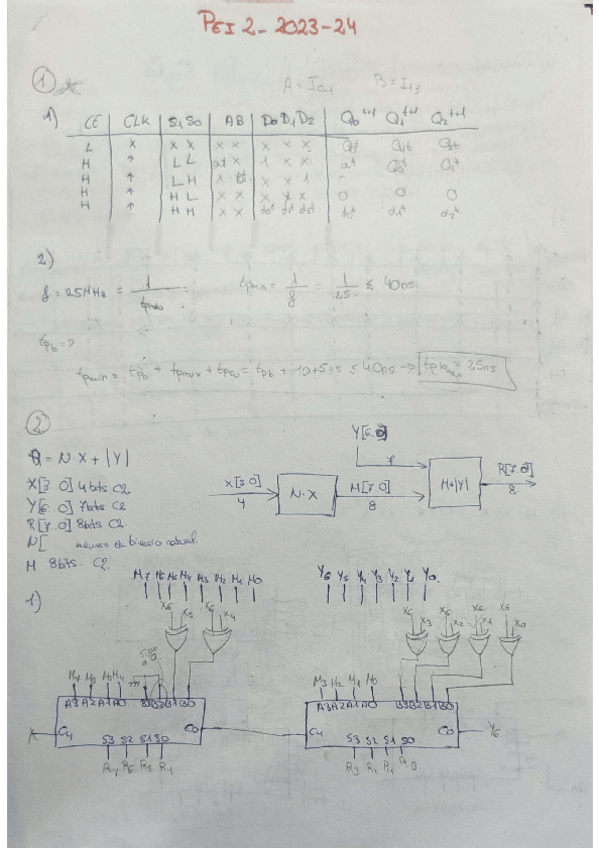 PEI 2 - 2023-24
①
A = I₀,₁ B = I₁,₃
1)
CE | CLK | S₁ S₀ | A B | D₀ D₁ D₂ | Q₀ᵗ⁺¹ Q₁ᵗ⁺¹ Q₂ᵗ⁺¹
L | X | X X | X X | X X X | Q₀ᵗ Q₁ᵗ Q₂ᵗ
H | ↑ | L L | aᵗ X | 1 X X | aᵗ Q₀ᵗ Q₁ᵗ
H | ↑ | L H | X bᵗ | X X 1
H | ↑ | H L | X X | X X X | 0 0 0
H | ↑ | H H | X X | d₀ᵗ d₁ᵗ d₂ᵗ | d₀ᵗ d₁ᵗ d₂ᵗ
2)
f = 25MHz = 1 / = tpmin = 1/f = 1/25 ≤ 40ns
tpb = ?
tpmin = tpb + tpmux + tpsu = tpb + 10+5ns ≤ 40ns → tpb = 25ns
②
R = N·X + |Y|
X[3..0] 4bits C2
Y[6..0] 7bits C2
R[7..0] 8bits C2
N[ número en binario natural.
M 8bits. C2.
Y[6..0]
7
X[3..0]
4
N·X
M[7..0]
8
M+|Y|
R[7..0]
8
1)
M7 M6 M5 M4 M3 M2 M1 M0
Y6 Y5 Y4 Y3 Y2 Y1 Y0
X6 X5 X6 X4
X6 X3 X6 X2 X6 X1 X6 X0
M7 M6 M5 M4
M3 M2 M1 M0
A3 A2 A1 A0 B3 B2 B1 B0
C4 C0
S3 S2 S1 S0
R7 R6 R5 R4
A3 A2 A1 A0 B3 B2 B1 B0
C4 C0 Y6
S3 S2 S1 S0
R3 R2 R1 R0